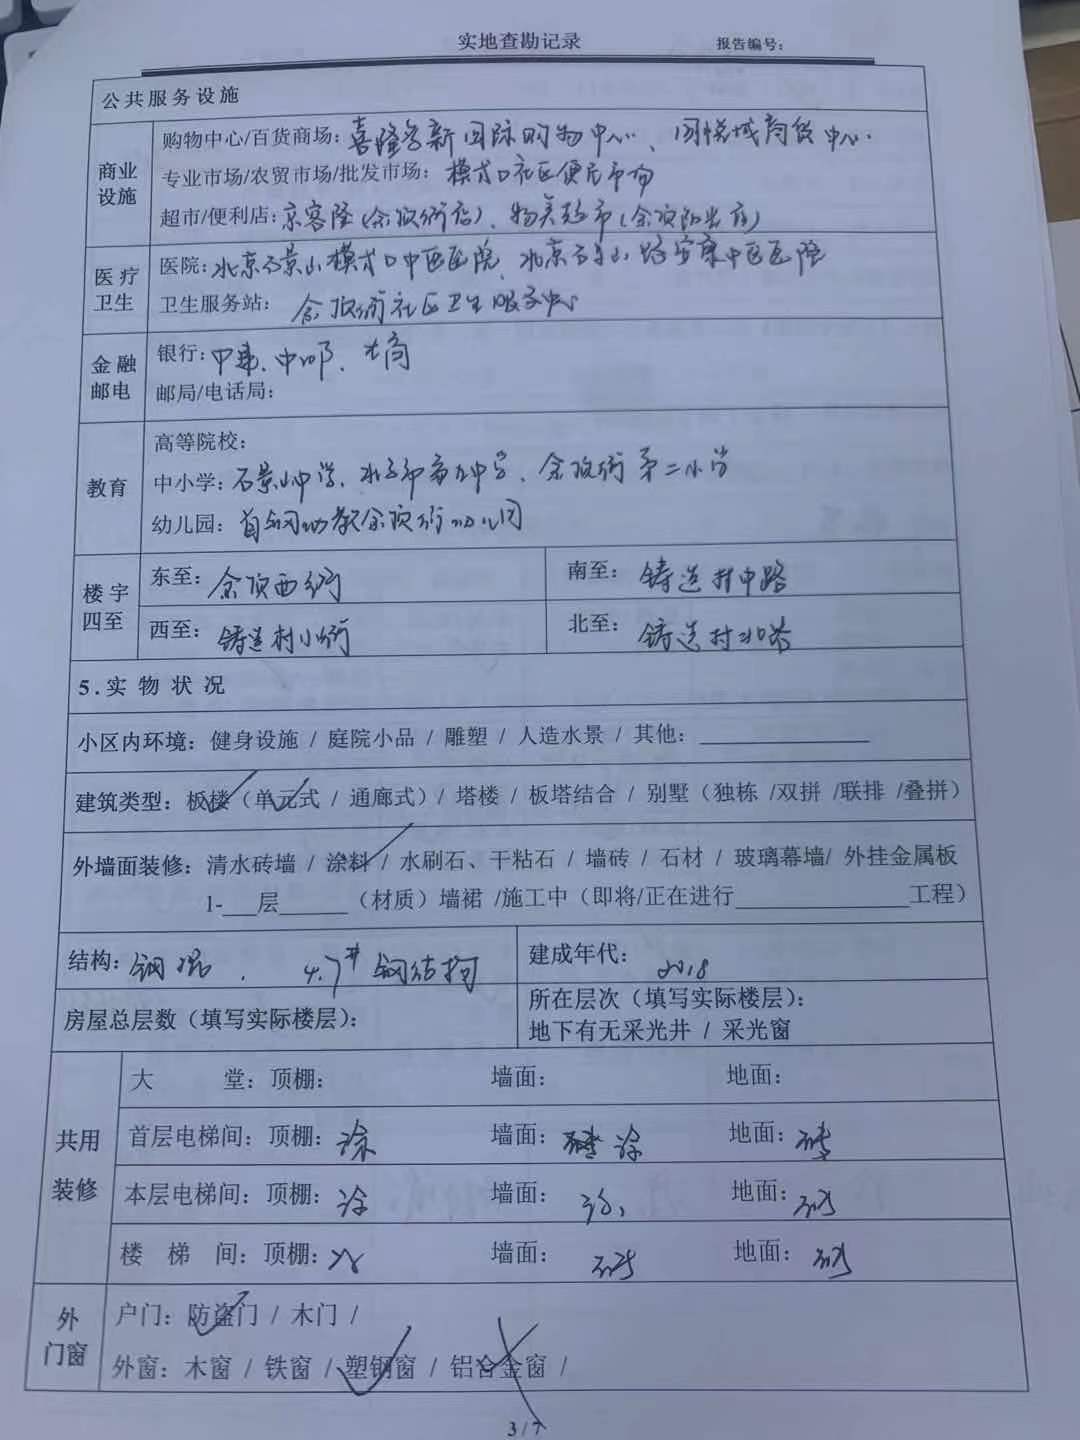 实地查勘记录 报告编号：
公共服务设施
商业设施
购物中心/百货商场：喜隆多新国际购物中心、悦城商货中心.
专业市场/农贸市场/批发市场：模式口社区便民市场
超市/便利店：京客隆(金顶街店)、物美超市(金顶阳光店)
医疗卫生
医院：北京石景山模式口中医医院、北京石景山 中医医院
卫生服务站：金顶街社区卫生服务中心
金融邮电
银行：中建、中邮、
邮局/电话局：
教育
高等院校：
中小学：石景山中学、北京市第九中学、金顶街第二小学
幼儿园：首钢幼教金顶街幼儿园
楼宇四至
东至：金顶西街 南至：铸造村中路
西至：铸造村小街 北至：铸造村北路
5.实物状况
小区内环境：健身设施 / 庭院小品 / 雕塑 / 人造水景 / 其他：
建筑类型：板楼（单元式 / 通廊式）/ 塔楼 / 板塔结合 / 别墅（独栋 /双拼 /联排 /叠拼）
外墙面装修：清水砖墙 / 涂料 / 水刷石、干粘石 / 墙砖 / 石材 / 玻璃幕墙/ 外挂金属板
1-___层______（材质）墙裙 /施工中（即将/正在进行_______________工程）
结构：钢混. 4.7# 钢结构 建成年代：2018
房屋总层数（填写实际楼层）： 所在层次（填写实际楼层）：
地下有无采光井 / 采光窗
共用装修
大 堂：顶棚： 墙面： 地面：
首层电梯间：顶棚：涂 墙面：砖 涂 地面：砖
本层电梯间：顶棚：涂 墙面：涂 地面：砖
楼 梯 间：顶棚： 墙面：砖 地面：砖
外门窗
户门：防盗门 / 木门 /
外窗：木窗 / 铁窗 / 塑钢窗 / 铝合金窗 /
3 / 7